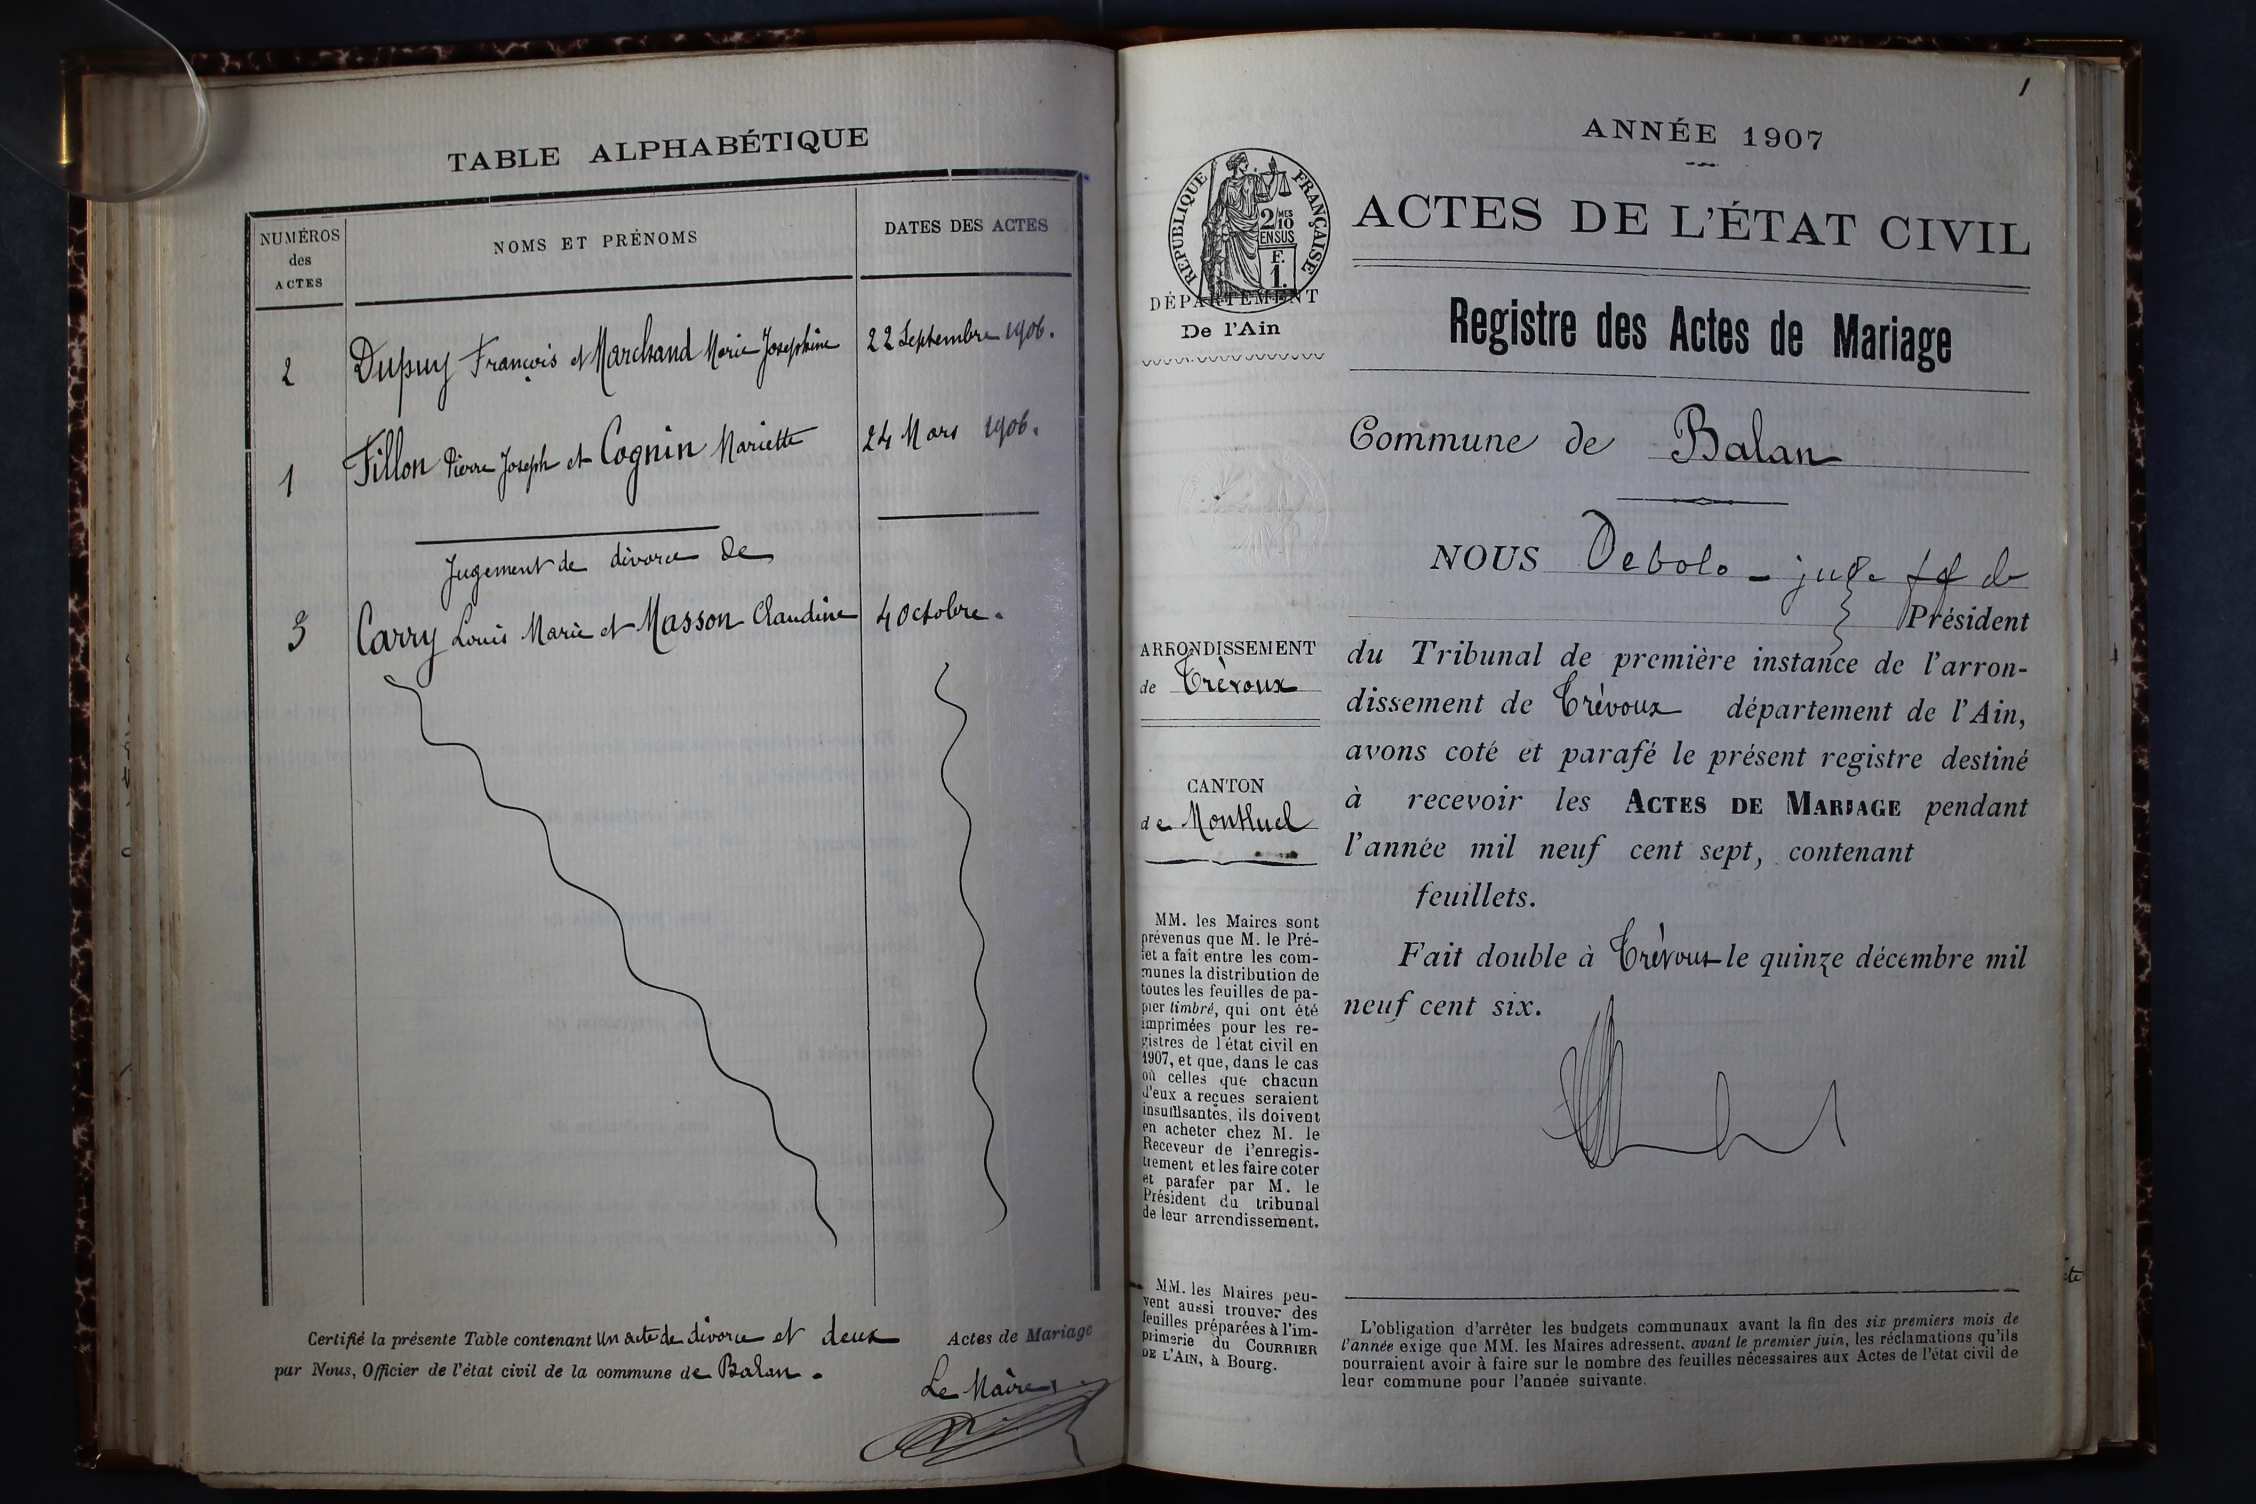 TABLE ALPHABÉTIQUE
NUMÉROS
des
ACTES
NOMS ET PRÉNOMS
DATES DES ACTES
2 Dupuy François et Marchand Marie Josephine 22 Septembre 1906.
1 Fillon Pierre Joseph et Cognin Mariette 24 Mars 1906.
Jugement de divorce de
3 Carry Louis Marie et Masson Claudine 4 Octobre.
Certifié la présente Table contenant un acte de divorce et deux Actes de Mariage
par Nous, Officier de l'état civil de la commune de Balan.
Le Maire,
1
RÉPUBLIQUE FRANÇAISE
2/10 MES
EN SUS
F.
1.
DÉPARTEMENT
De l'Ain
ARRONDISSEMENT
de Trévoux
CANTON
de Montluel
MM. les Maires sont
prévenus que M. le Pré-
fet a fait entre les com-
munes la distribution de
toutes les feuilles de pa-
pier timbré, qui ont été
imprimées pour les re-
gistres de l'état civil en
1907, et que, dans le cas
où celles que chacun
d'eux a reçues seraient
insuffisantes, ils doivent
en acheter chez M. le
Receveur de l'enregis-
trement et les faire coter
et parafer par M. le
Président du tribunal
de leur arrondissement.
MM. les Maires peu-
vent aussi trouver des
feuilles préparées à l'im-
primerie du COURRIER
DE L'AIN, à Bourg.
ANNÉE 1907
ACTES DE L'ÉTAT CIVIL
Registre des Actes de Mariage
Commune de Balan
NOUS Debolo - juge
Président
du Tribunal de première instance de l'arron-
dissement de Trévoux département de l'Ain,
avons coté et parafé le présent registre destiné
à recevoir les ACTES DE MARIAGE pendant
l'année mil neuf cent sept, contenant
feuillets.
Fait double à Trévoux le quinze décembre mil
neuf cent six.
L'obligation d'arrêter les budgets communaux avant la fin des six premiers mois de
l'année exige que MM. les Maires adressent, avant le premier juin, les réclamations qu'ils
pourraient avoir à faire sur le nombre des feuilles nécessaires aux Actes de l'état civil de
leur commune pour l'année suivante.